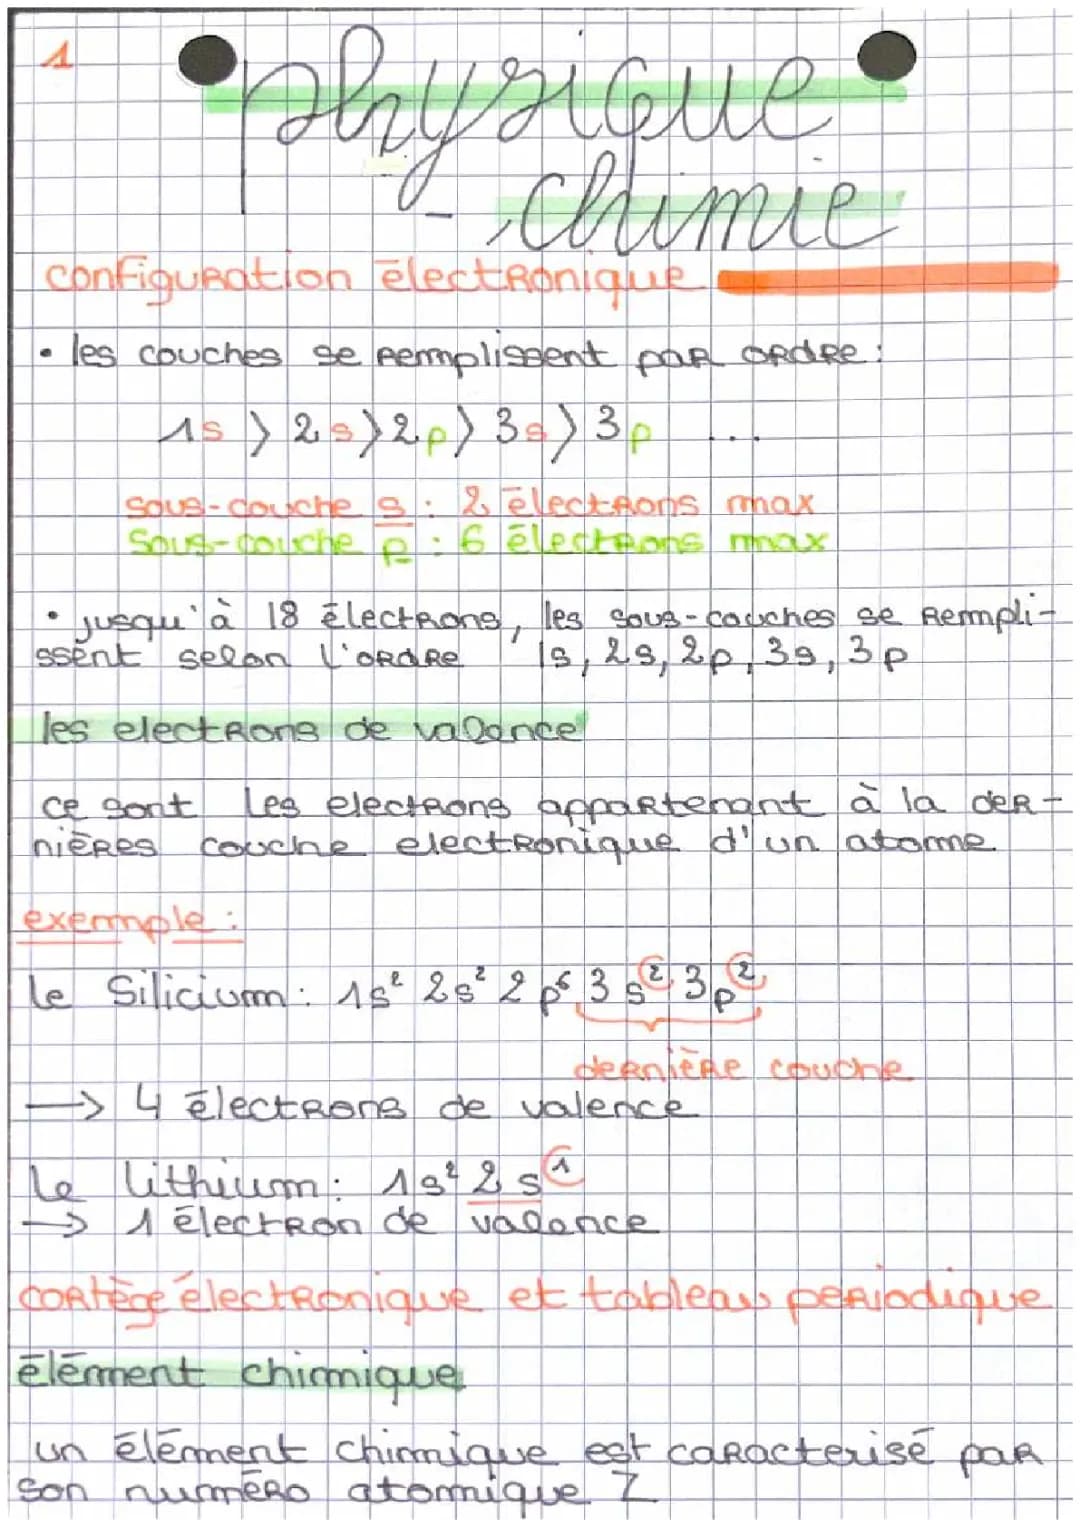 1
physique
-chimie
configuration électronique
• les couches se remplissent par ordre :
1s > 2s > 2p > 3s > 3p ...
sous-couche s : 2 électrons max
sous-couche p : 6 électrons max
• jusqu'à 18 électrons, les sous-couches se rempli-
ssent selon l'ordre 1s, 2s, 2p, 3s, 3p
les electrons de valence
ce sont les electrons appartenant à la der-
nières couche electronique d'un atome
exemple :
le Silicium : 1s² 2s² 2p⁶ 3s² 3p²
dernière couche
→ 4 électrons de valence
le lithium : 1s² 2s¹
→ 1 électron de valence
cortège électronique et tableau periodique
élément chimique
un élément chimique est caracterisé par
son numéro atomique Z